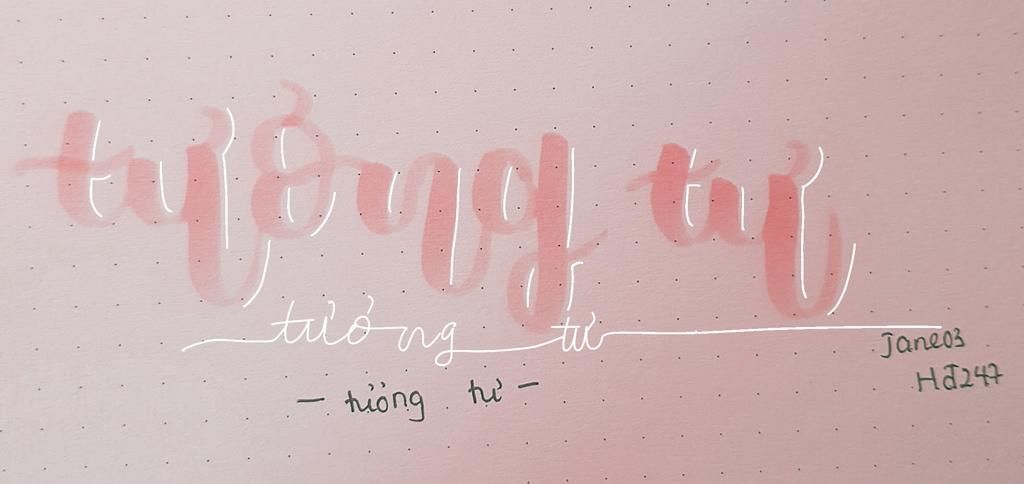 tương tư
tương tư
- tương tư -
Jane03
Hđ247